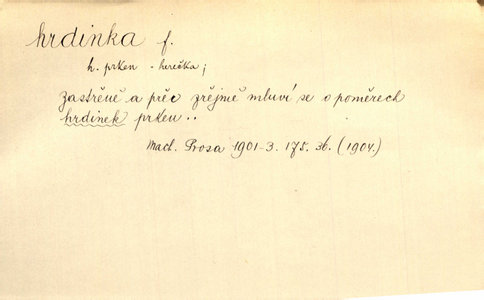 hrdinka f.
h. prken - herečka;
Zastřeně a přec zřejmě mluví se o poměrech
hrdinek prken..
Mach. Prosa 1901-3. 175. 36. (1904.)